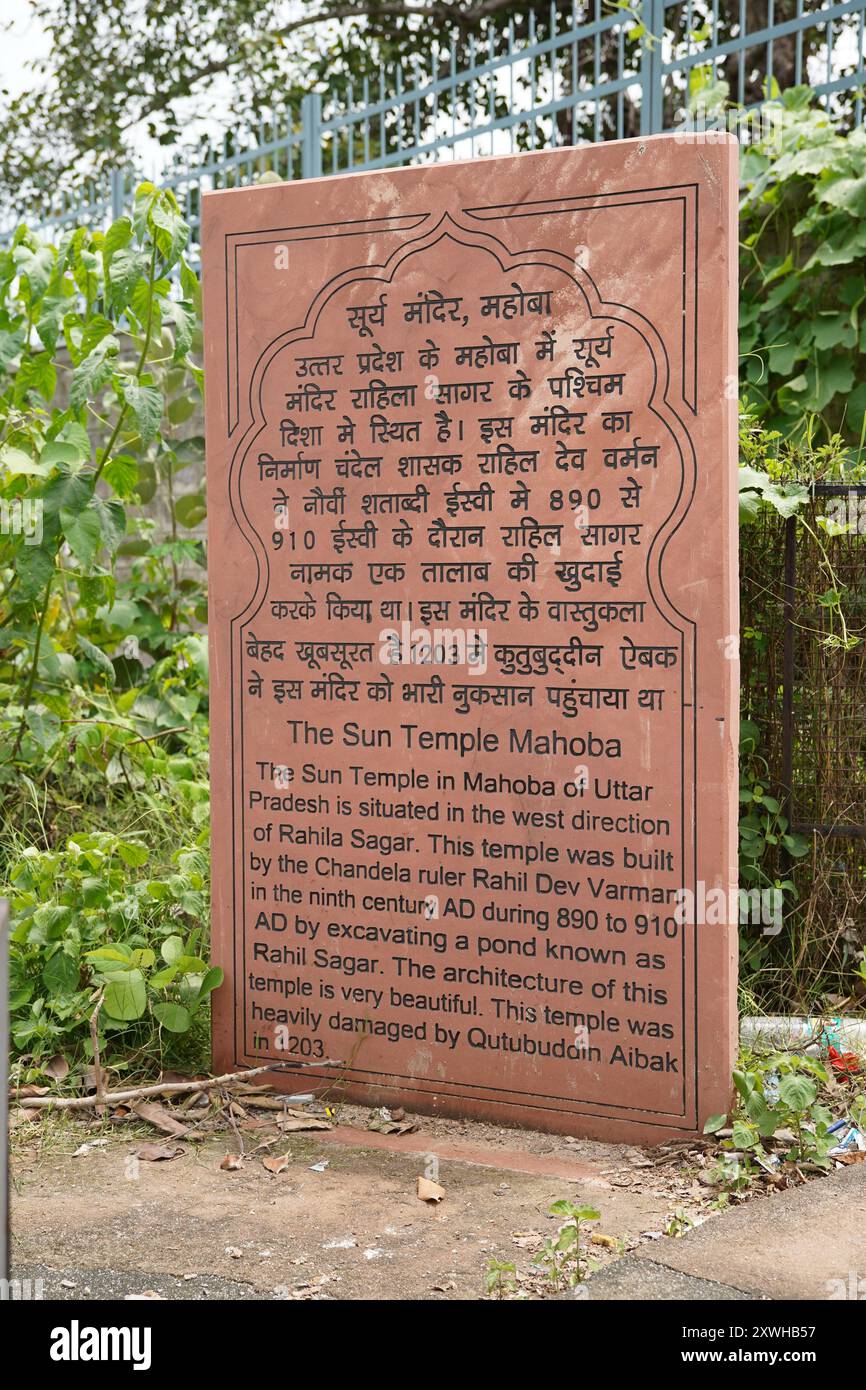 सूर्य मंदिर, महोबा
उत्तर प्रदेश के महोबा में सूर्य
मंदिर राहिला सागर के पश्चिम
दिशा मे स्थित है। इस मंदिर का
निर्माण चंदेल शासक राहिल देव वर्मन
ने नौवीं शताब्दी ईस्वी मे 890 से
910 ईस्वी के दौरान राहिल सागर
नामक एक तालाब की खुदाई
करके किया था। इस मंदिर के वास्तुकला
बेहद खूबसूरत है 1203 मे कुतुबुद्दीन ऐबक
ने इस मंदिर को भारी नुकसान पहुंचाया था
The Sun Temple Mahoba
The Sun Temple in Mahoba of Uttar
Pradesh is situated in the west direction
of Rahila Sagar. This temple was built
by the Chandela ruler Rahil Dev Varman
in the ninth century AD during 890 to 910
AD by excavating a pond known as
Rahil Sagar. The architecture of this
temple is very beautiful. This temple was
heavily damaged by Qutubuddin Aibak
in 1203
alamy
Image ID: 2XWHB57
www.alamy.com